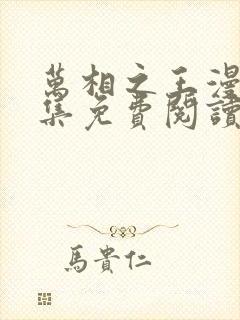 萬相之王漫
集免費閱讀
馬貴仁